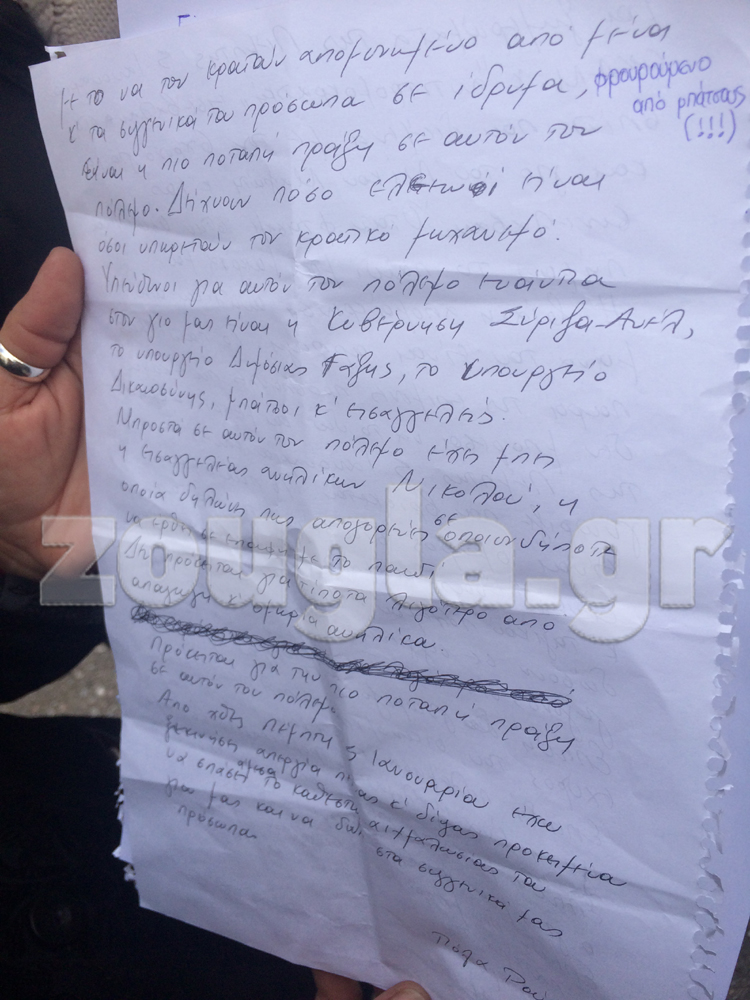 Με το να τον κρατάν απομονωμένο από μένα
κ' τα συγγενικά του πρόσωπα σε ίδρυμα, φρουρούμενο
από μπάτσους
(!!!)
είναι η πιο ποταπή πράξη σε αυτόν τον
πόλεμο. Δείχνουν πόσο ελεεινοί είναι
όσοι υπηρετούν τον κρατικό μηχανισμό.
Υπεύθυνοι για αυτόν τον πόλεμο ενάντια
στον γιο μας είναι η Κυβέρνηση Σύριζα-Ανέλ,
το υπουργείο Δημόσιας Τάξης, το υπουργείο
Δικαιοσύνης, μπάτσοι κ' εισαγγελείς.
Μπροστά σε αυτόν τον πόλεμο έχει μπει
η εισαγγελέας ανηλίκων Νικολού, η
οποία δηλώνει πως απαγορεύει σε οποιονδήποτε
να έρθει σε επαφή με το παιδί.
Δεν πρόκειται για τίποτα λιγότερο από
απαγωγή κ' ομηρία ανηλίκου.
Πρόκειται για την πιο ποταπή πράξη
σε αυτόν τον πόλεμο.
Από χθες πέμπτη 5 Ιανουαρίου έχω
ξεκινήσει απεργία πείνας κ' δίψας προκειμένου
να σπάσει άμεσα το καθεστώς αιχμαλωσίας του
γιου μας και να δοθεί στα συγγενικά μας
πρόσωπα.
Πόλα
zougla.gr